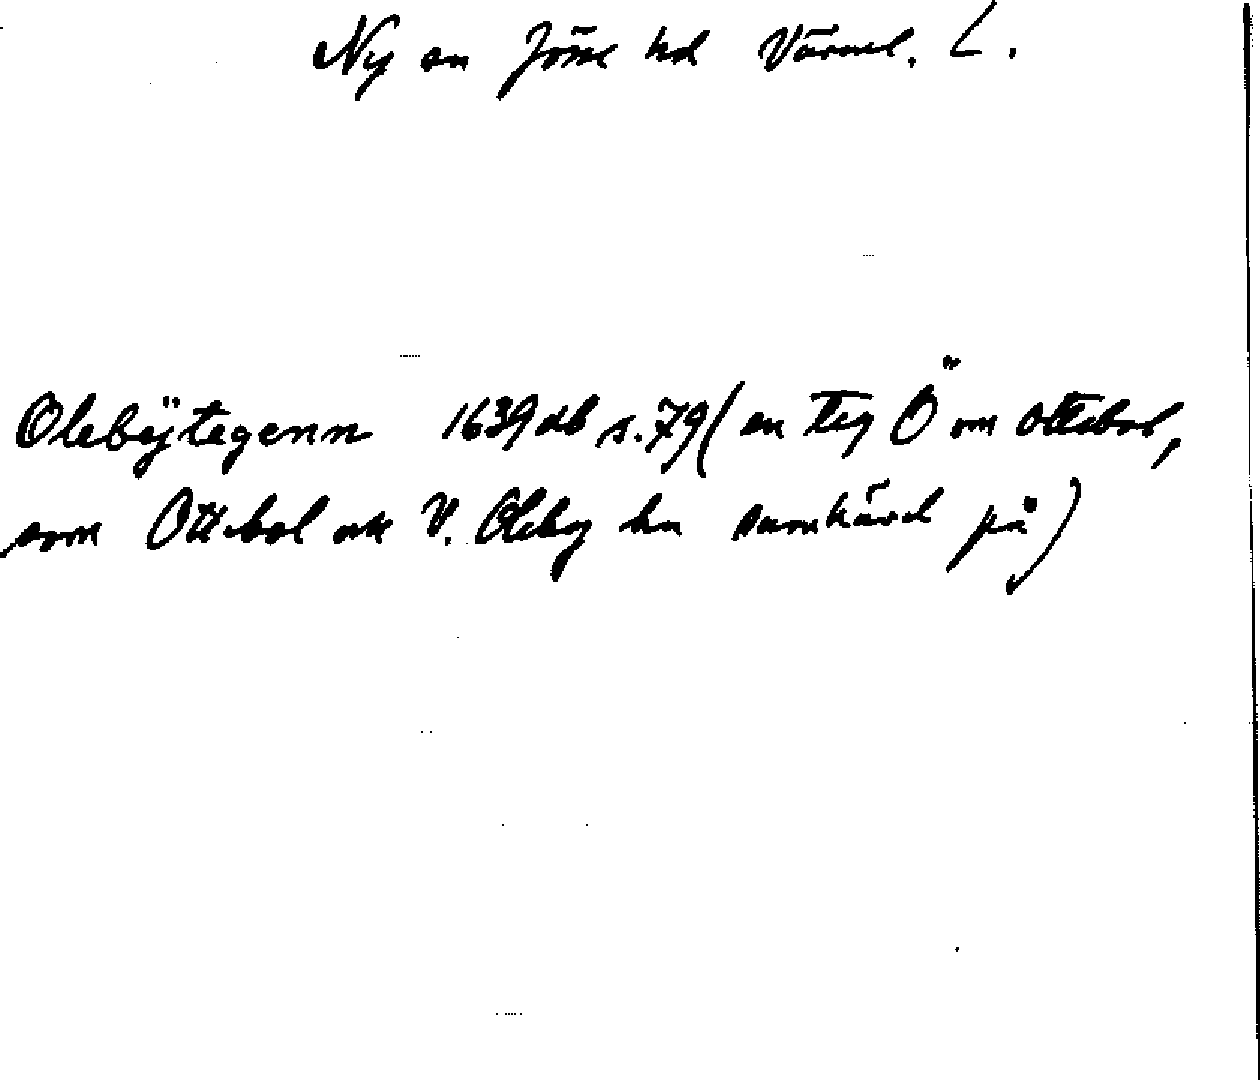 Ny sn Jösse hd Värml. L.
Olebÿtegenn 1639 db s. 79 (en teg Ö om Ottebol,
som Ottebol ock V. Oleby ha samhävd på)